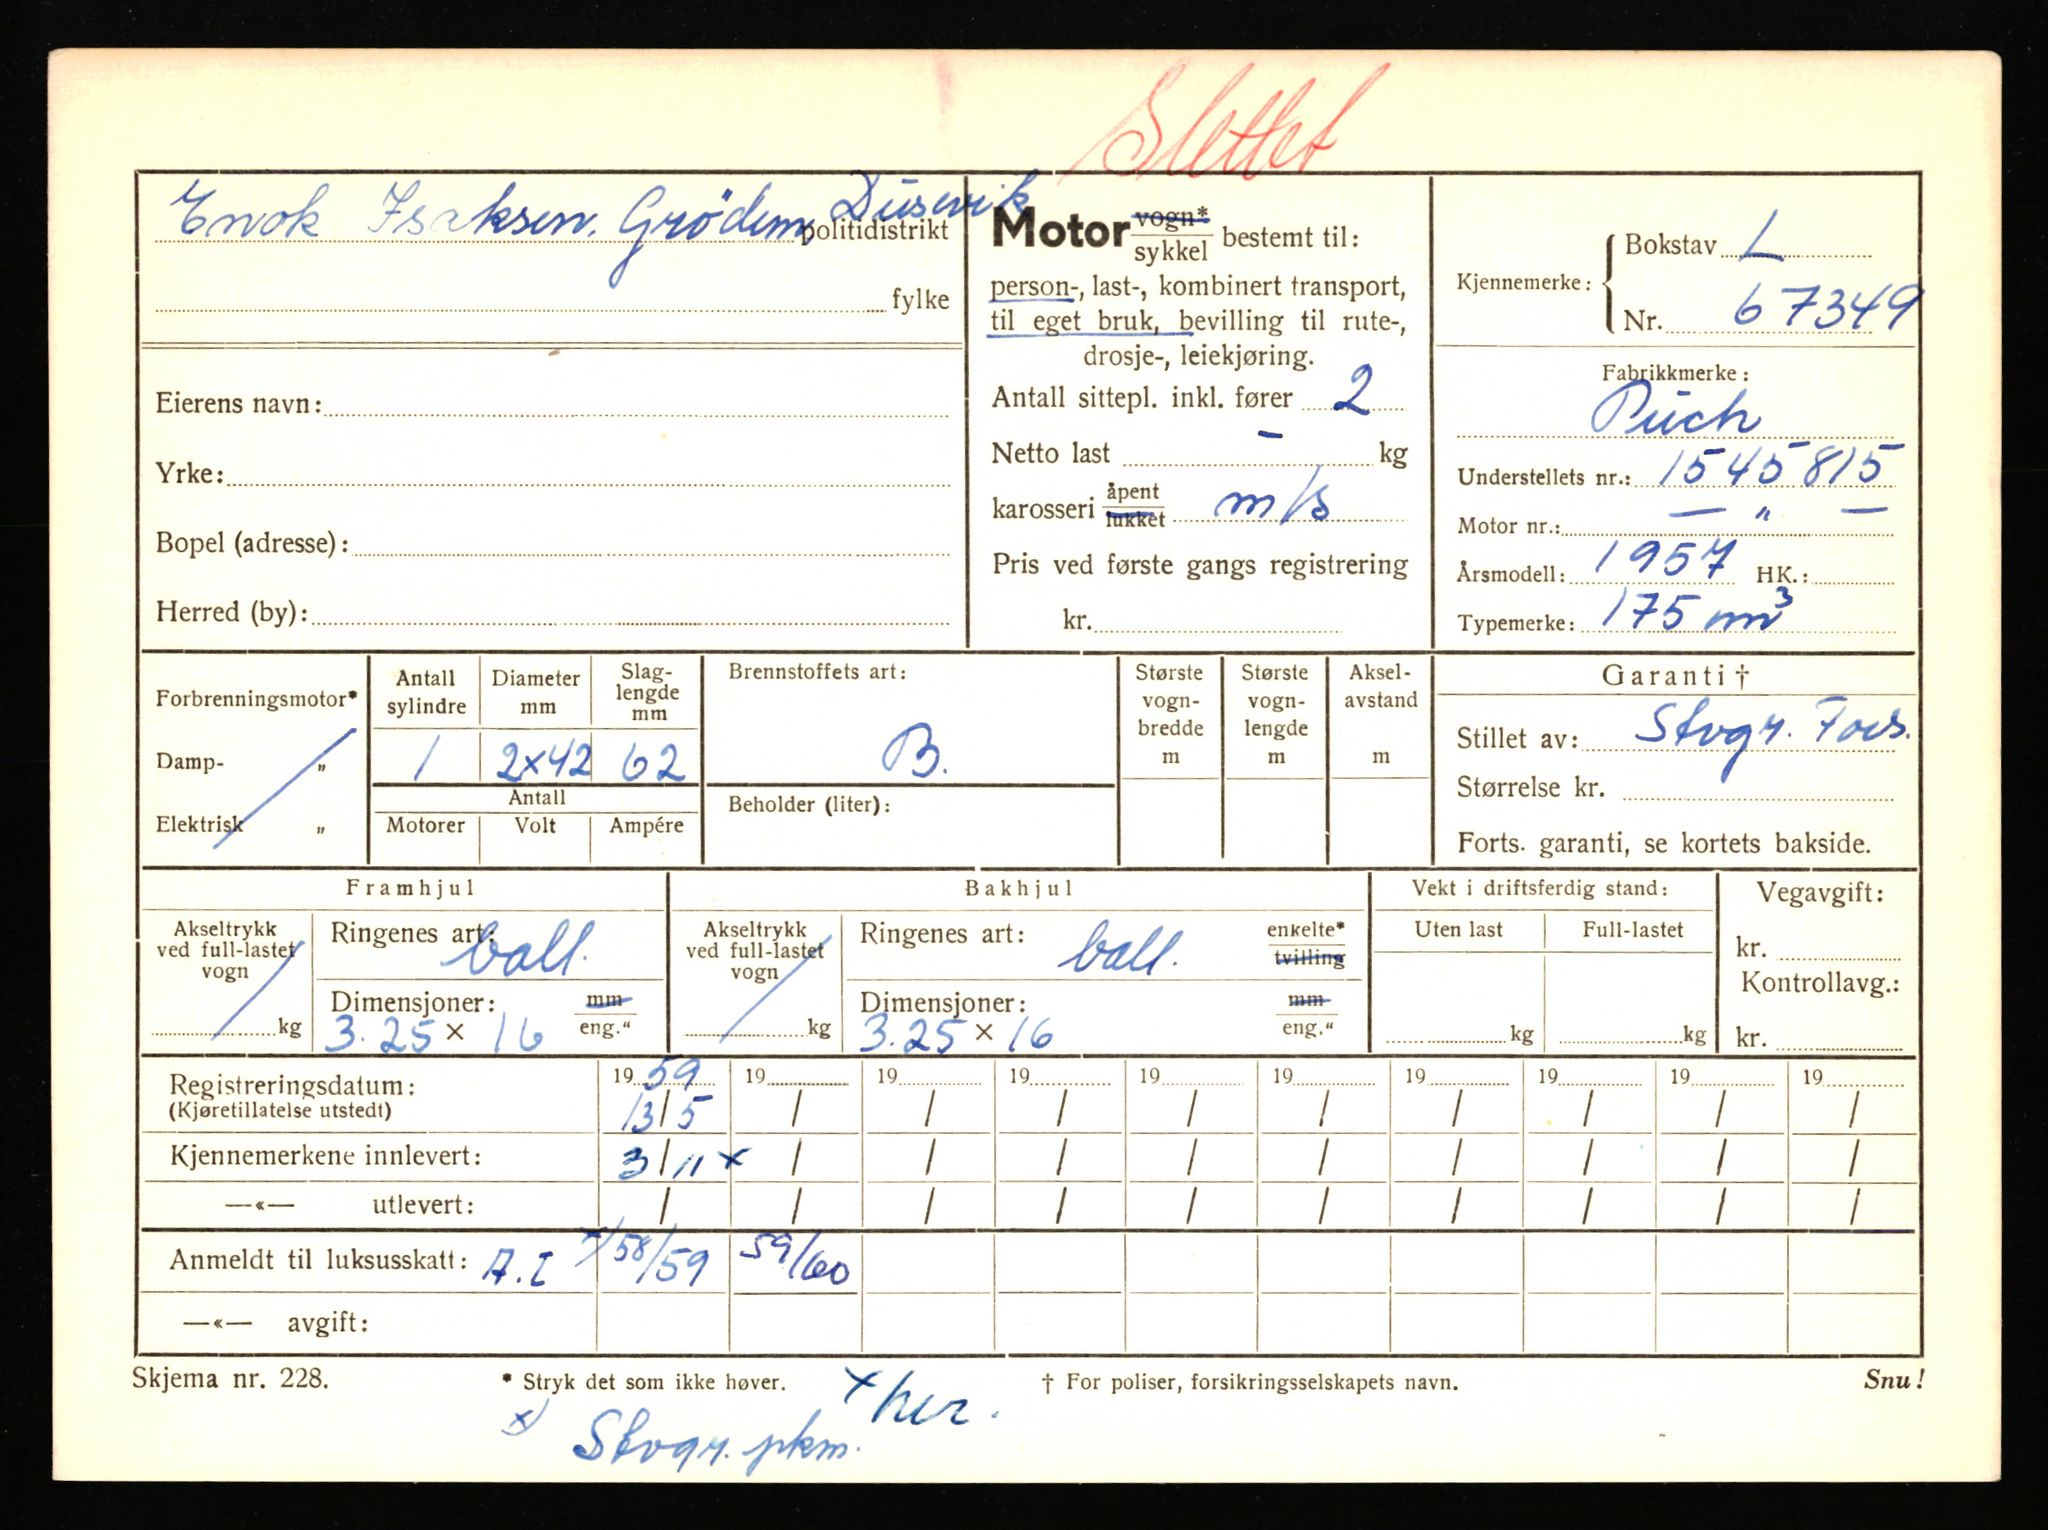 Slettet
Enok Isaksen. Grödem, Dusevik
politidistrikt
fylke
Eierens navn:
Yrke:
Bopel (adresse):
Herred (by):
Motor vogn* / sykkel bestemt til:
person-, last-, kombinert transport,
til eget bruk, bevilling til rute-,
drosje-, leiekjøring.
Antall sittepl. inkl. fører 2
Netto last – kg
karosseri åpent / lukket m/s
Pris ved første gangs registrering
kr.
Kjennemerke: Bokstav L
Nr. 67349
Fabrikkmerke:
Puch
Understellets nr.: 1545815
Motor nr.: — " —
Årsmodell: 1957 HK.:
Typemerke: 175 mm³
Forbrenningsmotor*
Damp- „
Elektrisk „
Antall sylindre Diameter mm Slag-lengde mm
1 2x42 62
Antall
Motorer Volt Ampére
Brennstoffets art:
B.
Beholder (liter):
Største vogn-bredde m
Største vogn-lengde m
Aksel-avstand m
Garanti †
Stillet av: Stvgr. Fors.
Størrelse kr.
Forts. garanti, se kortets bakside.
Framhjul
Akseltrykk ved full-lastet vogn
kg
Ringenes art: ball.
Dimensjoner: mm / eng."
3.25 × 16
Bakhjul
Akseltrykk ved full-lastet vogn
kg
Ringenes art: ball. enkelte* / tvilling
Dimensjoner: mm / eng."
3.25 × 16
Vekt i driftsferdig stand:
Uten last Full-lastet
kg kg
Vegavgift:
kr.
Kontrollavg.:
kr.
Registreringsdatum: 19 59 19 19 19 19 19 19 19 19 19
(Kjøretillatelse utstedt) 13/5 / / / / / / / / /
Kjennemerkene innlevert: 3/11 x / / / / / / / / /
—«— utlevert: / / / / / / / / / /
Anmeldt til luksusskatt: A.I x) 58/59 59/60
—«— avgift:
Skjema nr. 228.
* Stryk det som ikke høver.
† For poliser, forsikringsselskapets navn.
Snu!
x her.
x) Stvgr. pkm.